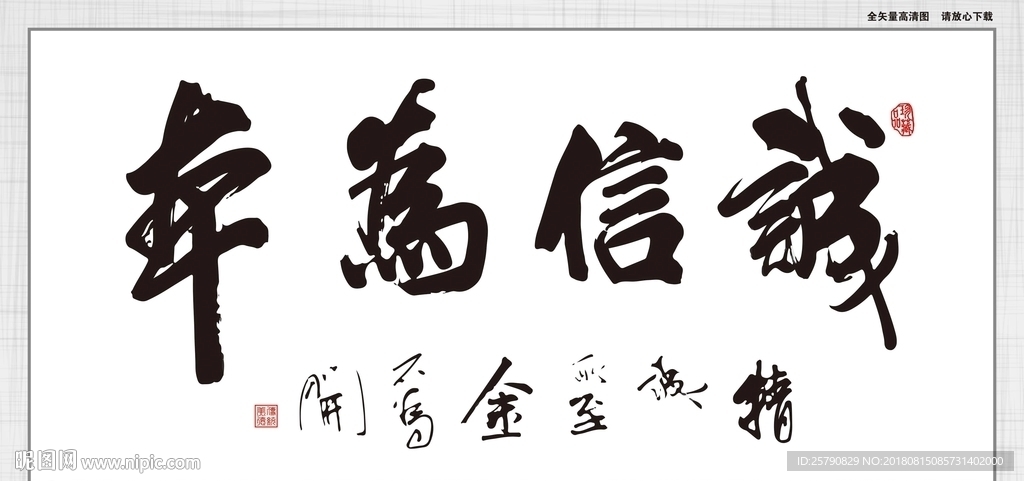 全矢量高清图 请放心下载
誠信為本
精誠所至金石為開
昵图网 www.nipic.com
ID:25790829 NO:20180815085731402000